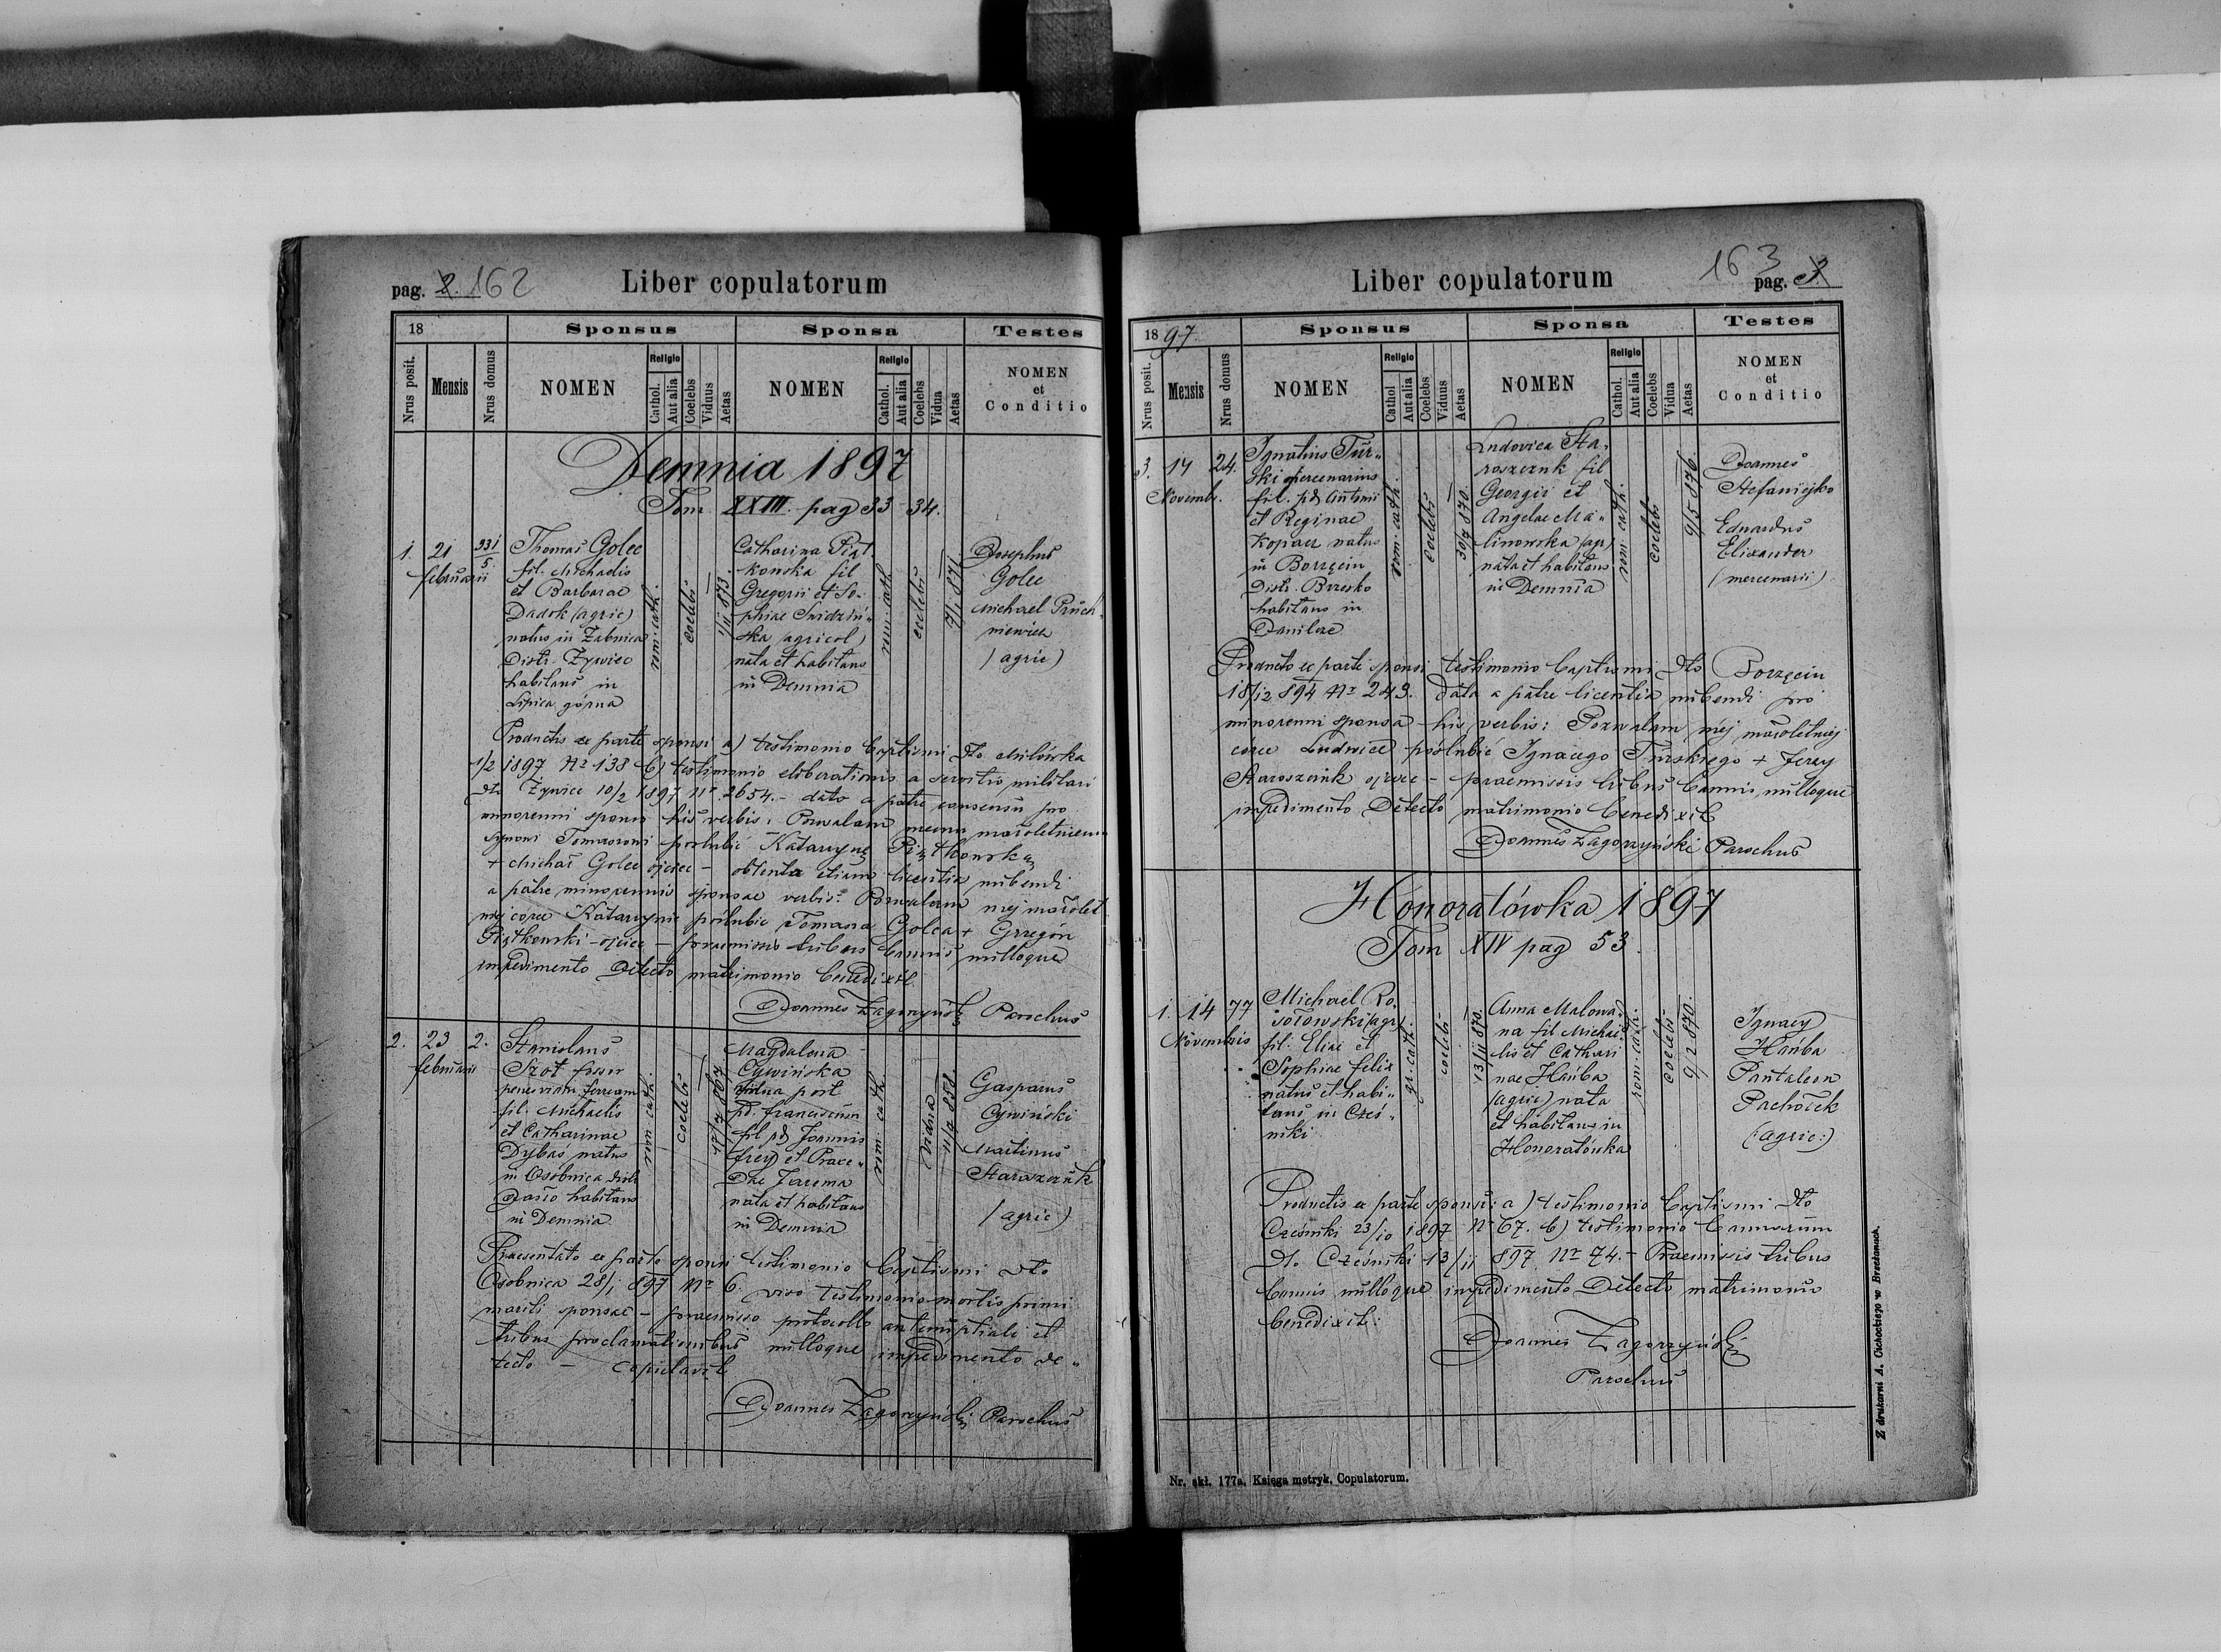 pag. 2. 162
Liber copulatorum
18
Sponsus
Sponsa
Testes
Nrus posit.
Mensis
Nrus domus
NOMEN
Religio
Cathol.
Aut alia
Coelebs
Viduus
Aetas
NOMEN
Religio
Cathol.
Aut alia
Coelebs
Vidua
Aetas
NOMEN
et
Conditio
Demnia 1897
Tom XXIII. pag 33-34.
1.
21
februarii
Thomas Golec
fil. Michaelis
et Barbarae
Dadok (agric)
natus in Żabnica
Distr. Żywiec
habitans in
Lipica górna
rom. cath.
coelebs
1/11 873.
Catharina Piąt-
kowska fil
Gregorii et So-
phiae
ska (agricol)
nata et habitans
in Demnia
rom. cath
coelebs
Josephus
Golec
Michael Pruch
niewicz
(agric)
Productis ex parte sponsi a) testimonio baptismi dto Milówka
1/2 1897 Nr 138 b) testimonio eliberationis a servitio militari
dto Żywiec 10/2 1897 Nr 2654.- dato a patre consensu pro
minorenni sponso his verbis: Pozwalam memu małoletniemu
synowi Tomaszowi poślubić Katarzynę Piątkowską
+ Michał Golec ojciec - obtenta etiam licentia nubendi
a patre minorennis sponsae verbis: Pozwalam mej małolet
niej córce Katarzynie poślubić Tomasza Golca + Grzegórz
Piątkowski - ojciec - praemissis tribus bannis nulloque
impedimento detecto matrimonio benedixit.
Joannes Zagorzyński Parochus
2.
23
februarii
2.
Stanislaus
Szot fossor
penes viam ferream
fil. Michaelis
et Catharinae
Dybas natus
in Osobnica distr
Jasło habitans
in Demnia
rom cath.
coelebs
Magdalena
Cywińska
vidua post
pd. franciscum
fil pd Joannis
frey et Praxe-
dae Jarema
nata et habitans
in Demnia
rom. cath.
Vidua
11/7 858.
Gasparus
Cywiński
Martinus
Staroszczuk
(agric)
Praesentato ex parte sponsi testimonio baptismi dto
Osobnica 28/1 897 Nr 6. viso testimonio mortis primi
mariti sponsae - praemisso protocollo antenuptiali et
tribus proclamationibus nulloque impedimento de-
tecto - copulavit
Joannes Zagorzyński Parochus
Liber copulatorum
163
pag. 3
1897
Sponsus
Sponsa
Testes
Nrus posit.
Mensis
Nrus domus
NOMEN
Religio
Cathol
Aut alia
Coelebs
Viduus
Aetas
NOMEN
Religio
Cathol.
Aut alia
Coelebs
Vidua
Aetas
NOMEN
et
Conditio
3.
14
Novembr.
24.
Ignatius Tur-
ski mercenarius
fil. pd Antonii
et Reginae
Kopacz natus
in Borzęcin
Distr. Brzesko
habitans in
Danilcze
rom. cath.
coelebs
30/7 870.
Ludovica Sta-
roszczuk fil
Georgii et
Angelae Ma-
linowska (agr)
nata et habitans
in Demnia
rom. cath.
coelebs
9/5 876.
Joannes
Stefaniejko
Eduardus
Elixander
(mercenarii)
Producto ex parte sponsi testimonio baptismi dto Borzęcin
18/12 894 Nr 243. data a patre licentia nubendi pro
minorenni sponsa his verbis: Pozwalam mej małoletniej
córce Ludwice poślubić Ignacego Turskiego + Jerzy
Staroszczuk ojciec - praemissis tribus bannis nulloque
impedimento detecto matrimonio benedixit
Joannes Zagorzyński Parochus
Honoratówka 1897
Tom XIV pag 53.
1.
14
Novembris
77
Michael Ro-
sołowski (agr)
fil. Eliae et
Sophiae felix
natus et habi-
tans in Cześ-
niki
gr. cath.
coelebs
13/11 870.
Anna Malowa-
na fil Michae-
lis et Cathari
nae Hańba
(agric) nata
et habitans in
Honoratówka
rom. cath.
coelebs
9/2 870.
Ignacy
Hańba
Pantaleon
Pachołek
(agric:)
Productis ex parte sponsi: a) testimonio baptismi dto
Cześniki 23/10 1897 Nr 67. b) testimonio bannorum
dto Cześniki 13/11 897 Nr 74.- Praemissis tribus
bannis nulloque impedimento detecto matrimonio
benedixit.
Joannes Zagorzyński
Parochus
Nr. skł. 177a. Księga metryk. Copulatorum.
Z drukarni A. Ciechockiego w Brzeżanach.